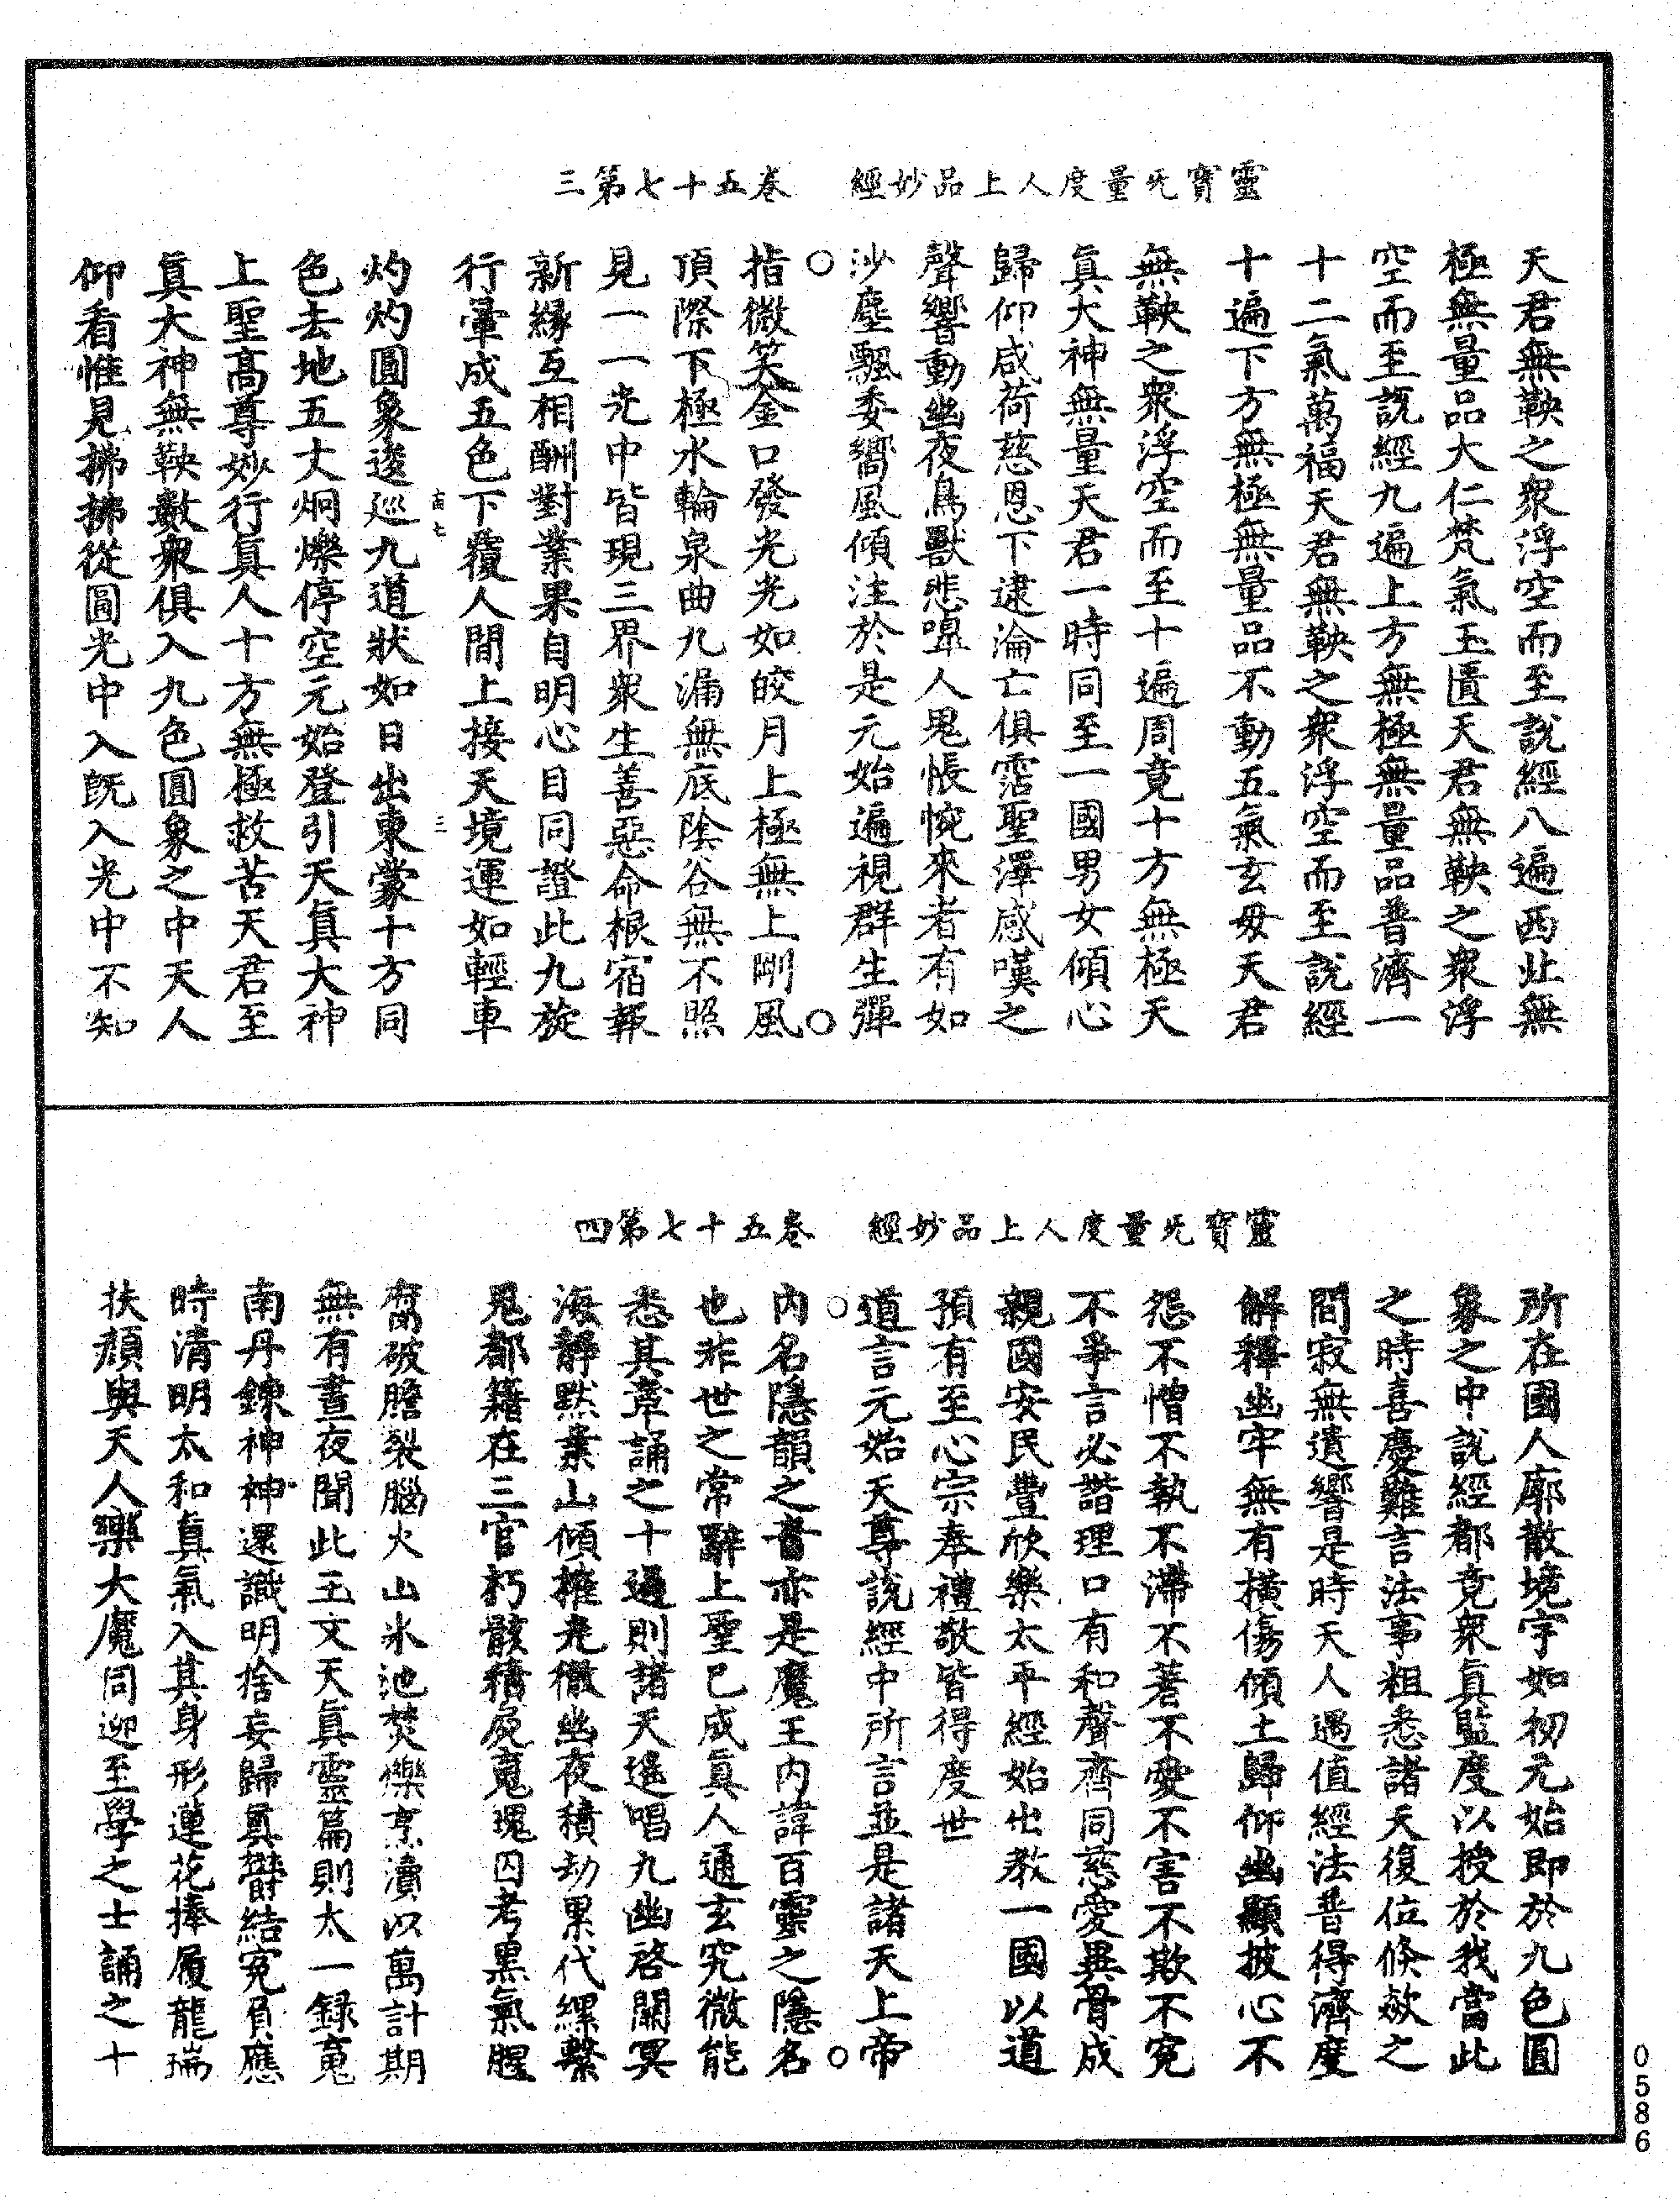 靈寶无量度人上品妙經　卷五十七第三
天君無鞅之衆浮空而至説經八遍西北無
極無量品大仁梵氣玉匱天君無鞅之衆浮
空而至説經九遍上方無極無量品普濟一
十二氣萬福天君無鞅之衆浮空而至説經
十遍下方無極無量品不動五氣玄毋天君
無鞅之衆浮空而至十遍周竟十方無極天
眞大神無量天君一時同至一國男女傾心
歸仰咸荷慈恩下逮淪亡俱霑聖澤感嘆之
聲響動幽夜鳥獸悲嘷人鬼悵惋來者有如
沙塵飄委嚮風傾注於是元始遍視群生彈
指微笑金口發光光如皎月上極無上剛風
頂際下極水輪泉曲九漏無底陰谷無不照
見一一光中皆現三界衆生善惡命根宿報
新緣互相酬對業果自明心目同證此九旋
行暈成五色下覆人間上接天境運如輕車
灼灼圓象逡巡九道狀如日出東蒙十方同
色去地五丈炯爍停空元始登引天眞大神
上聖高尊妙行眞人十方無極救苦天君至
眞大神無鞅數衆俱入九色圓象之中天人
仰看惟見拂拂從圓光中入旣入光中不知
靈寶无量度人上品妙經　卷五十七第四
所在國人廓散境宇如初元始即於九色圓
象之中説經都竟衆眞監度以授於我當此
之時喜慶難言法事粗悉諸天復位倏欻之
間寂無遺響是時天人遇值經法普得濟度
解釋幽牢無有横傷傾土歸仰幽顯披心不
怨不憎不執不滯不著不愛不害不欺不寃
不爭言必諧理口有和聲齊同慈愛異骨成
親國安民豐欣樂太平經始出教一國以道
預有至心宗奉禮敬皆得度世
道言元始天尊説經中所言並是諸天上帝
内名隱韻之音亦是魔王内諱百靈之隱名
也非世之常辭上聖已成眞人通玄究微能
悉其章誦之十過則諸天遙唱九幽啓關冥
海靜默業山傾摧光徹幽夜積劫累代縲繫
鬼都籍在三官朽骸積屍䰟瑰囚考黑氣腥
腐破膽裂腦火山氷池焚爍烹瀆以萬計期
無有晝夜聞此玉文天眞靈篇則太一録䰟
南丹鍊神神還識明捨妄歸眞欝結寃負應
時清明太和眞氣入其身形蓮花捧履龍瑞
扶顔與天人樂大魔同迎至學之士誦之十
0586